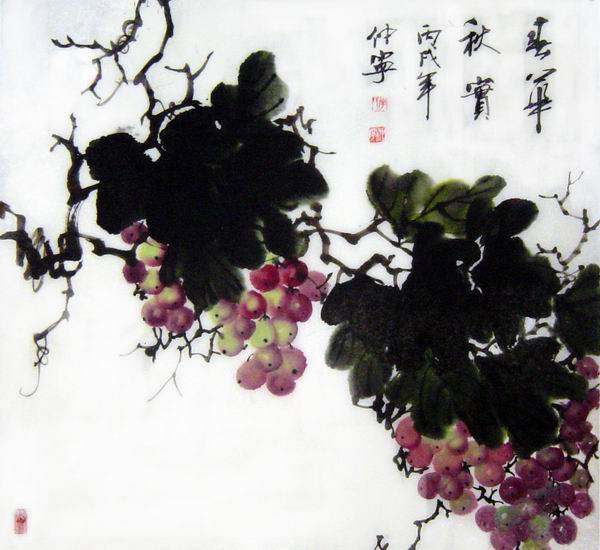 春華
秋實
丙戌年
仲寧